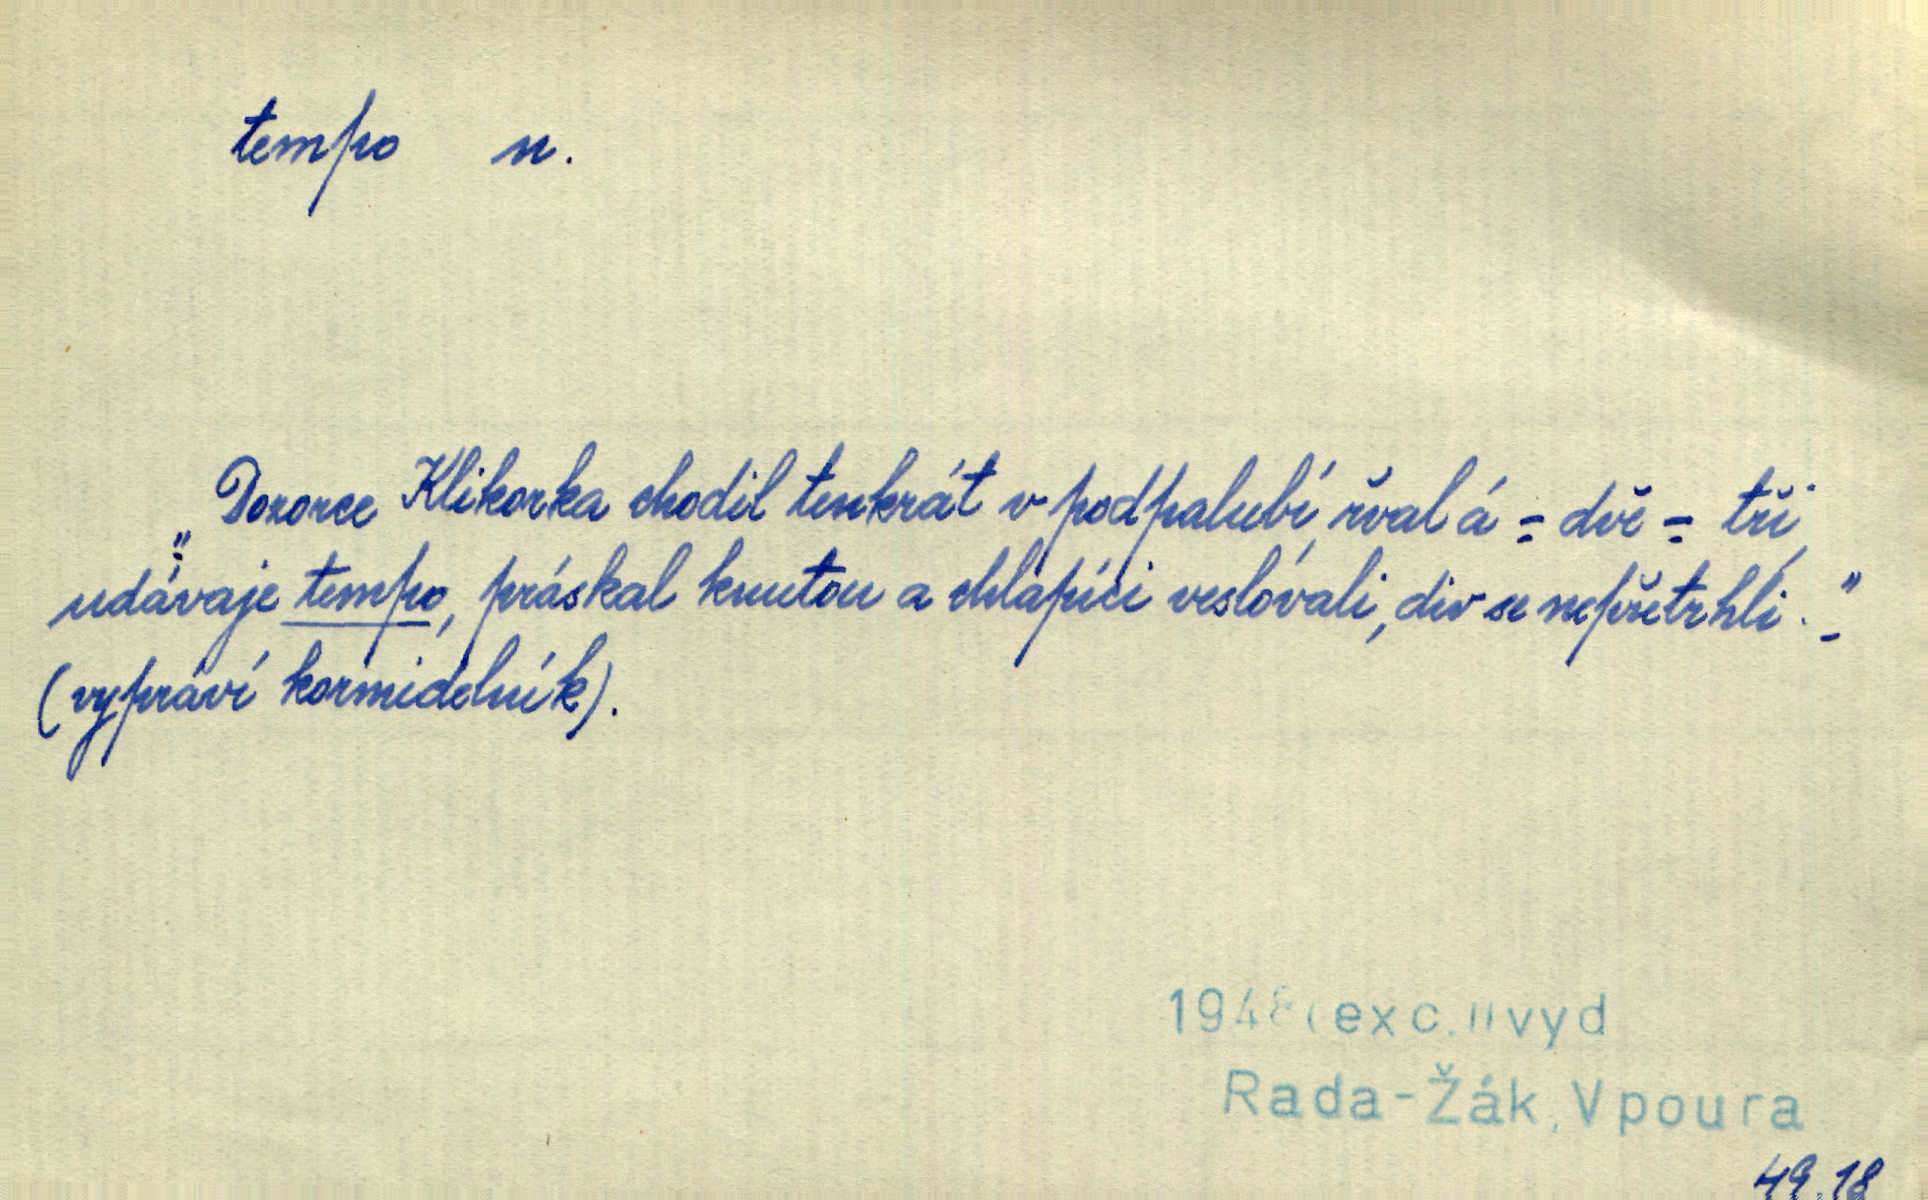 tempo n.
„Dozorce Klikorka chodil tenkrát v podpalubí, řval á = dvě = tři,
udávaje tempo, práskal knutou a chlapíci veslovali, div se nepřetrhli." -
(vypráví kormidelník).
1948 (exc. II vyd
Rada-Žák, Vpoura
49, 18